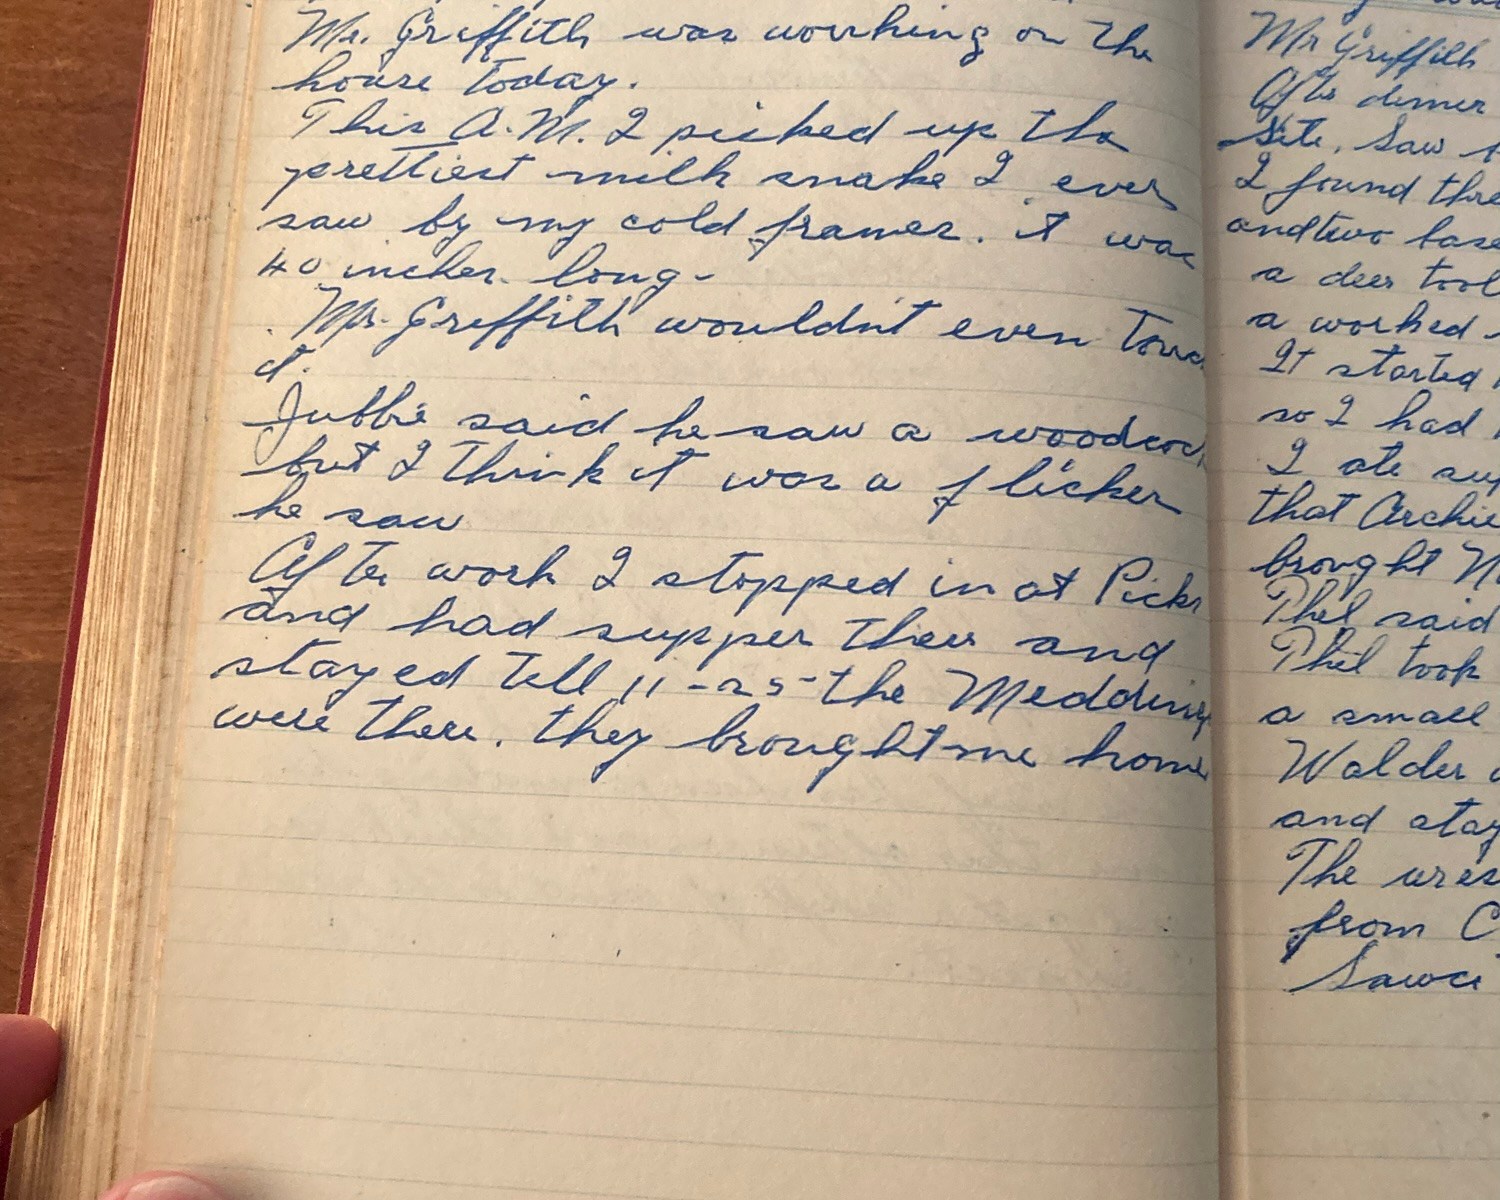 Mr. Griffith was working on the
house today.
This A.M. I picked up the
prettiest milk snake I ever
saw by my cold frames. it was
40 inches long-
Mr. Griffith wouldn't even touc
it.
Jubbie said he saw a woodcock
but I think it was a flicker
he saw
After work I stopped in at Picks
and had supper there and
stayed tell 11-25-the Meddings
were there. they brought me home
Mr Griffith
After dinner
site. Saw
I found thre
and two base
a deer tool
a worked
It started
so I had
I ate sup
that Archie
brought
Phil said
Phil took
a small
Walder
and stay
The wres
from C